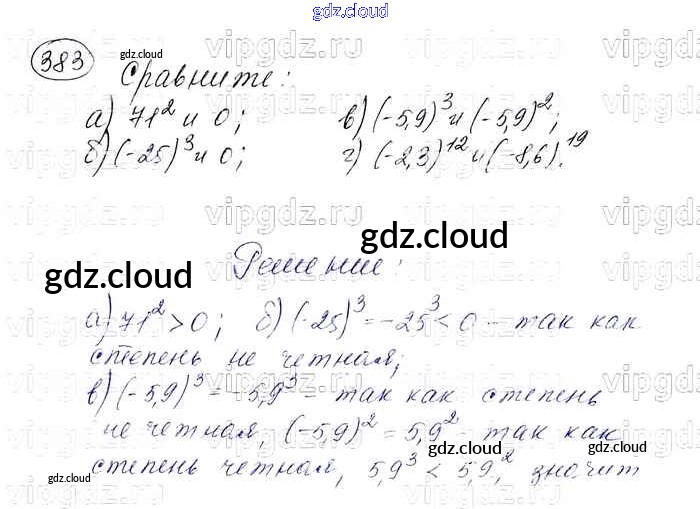 gdz.cloud
383 gdz.cloud
Сравните:
а) 71² и 0; в) (-5,9)³ и (-5,9)²;
б) (-25)³ и 0; г) (-2,3)¹² и (-8,6)¹⁹.
gdz.cloud
gdz.cloud
Решение:
а) 71² > 0; б) (-25)³ = -25³ < 0 - так как
степень не четная;
в) (-5,9)³ = -5,9³ - так как степень
не четная, (-5,9)² = 5,9² - так как
gdz.cloud gdz.cloud
степень четная, 5,9³ < 5,9², значит
gdz.cloud
vipgdz.ru